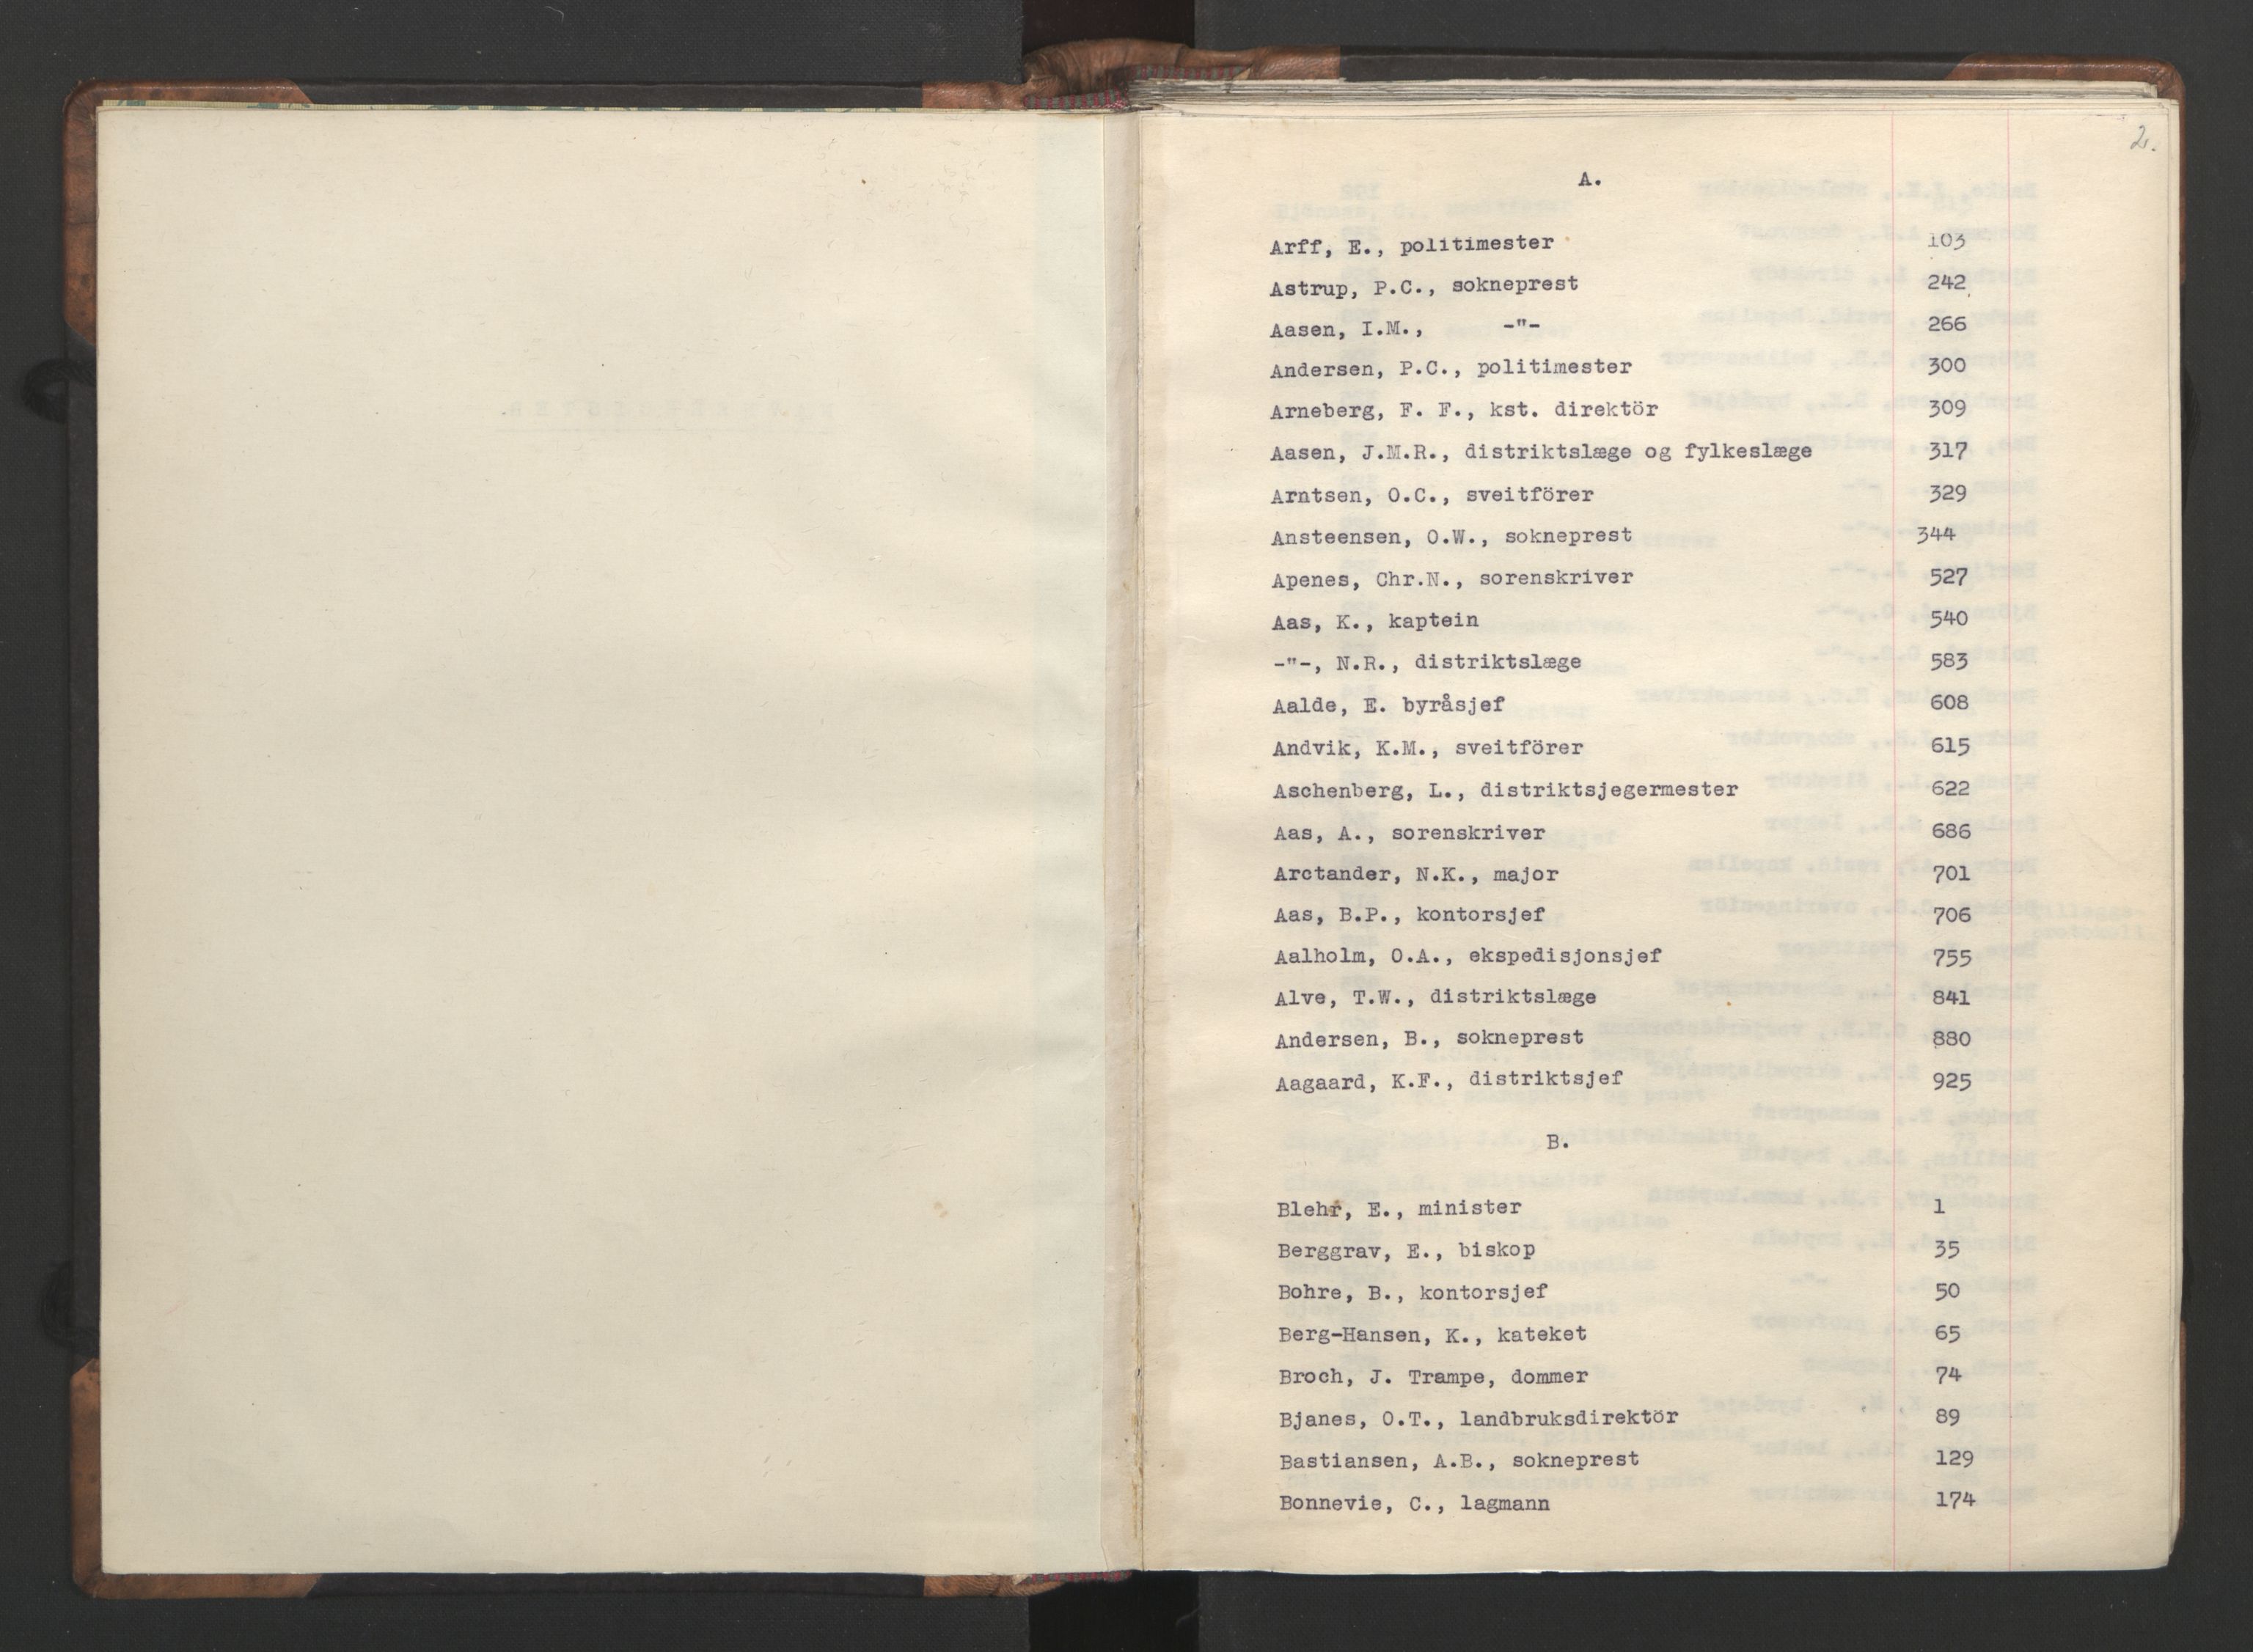 2.
A.
Arff, E., politimester 103
Astrup, P.C., sokneprest 242
Aasen, I.M., -"- 266
Andersen, P.C., politimester 300
Arneberg, F. F., kst. direktör 309
Aasen, J.M.R., distriktslæge og fylkeslæge 317
Arntsen, O.C., sveitförer 329
Ansteensen, O.W., sokneprest 344
Apenes, Chr.N., sorenskriver 527
Aas, K., kaptein 540
-"-, N.R., distriktslæge 583
Aalde, E. byråsjef 608
Andvik, K.M., sveitförer 615
Aschenberg, L., distriktsjegermester 622
Aas, A., sorenskriver 686
Arctander, N.K., major 701
Aas, B.P., kontorsjef 706
Aalholm, O.A., ekspedisjonsjef 755
Alve, T.W., distriktslæge 841
Andersen, B., sokneprest 880
Aagaard, K.F., distriktsjef 925
B.
Blehr, E., minister 1
Berggrav, E., biskop 35
Bohre, B., kontorsjef 50
Berg-Hansen, K., kateket 65
Broch, J. Trampe, dommer 74
Bjanes, O.T., landbruksdirektör 89
Bastiansen, A.B., sokneprest 129
Bonnevie, C., lagmann 174